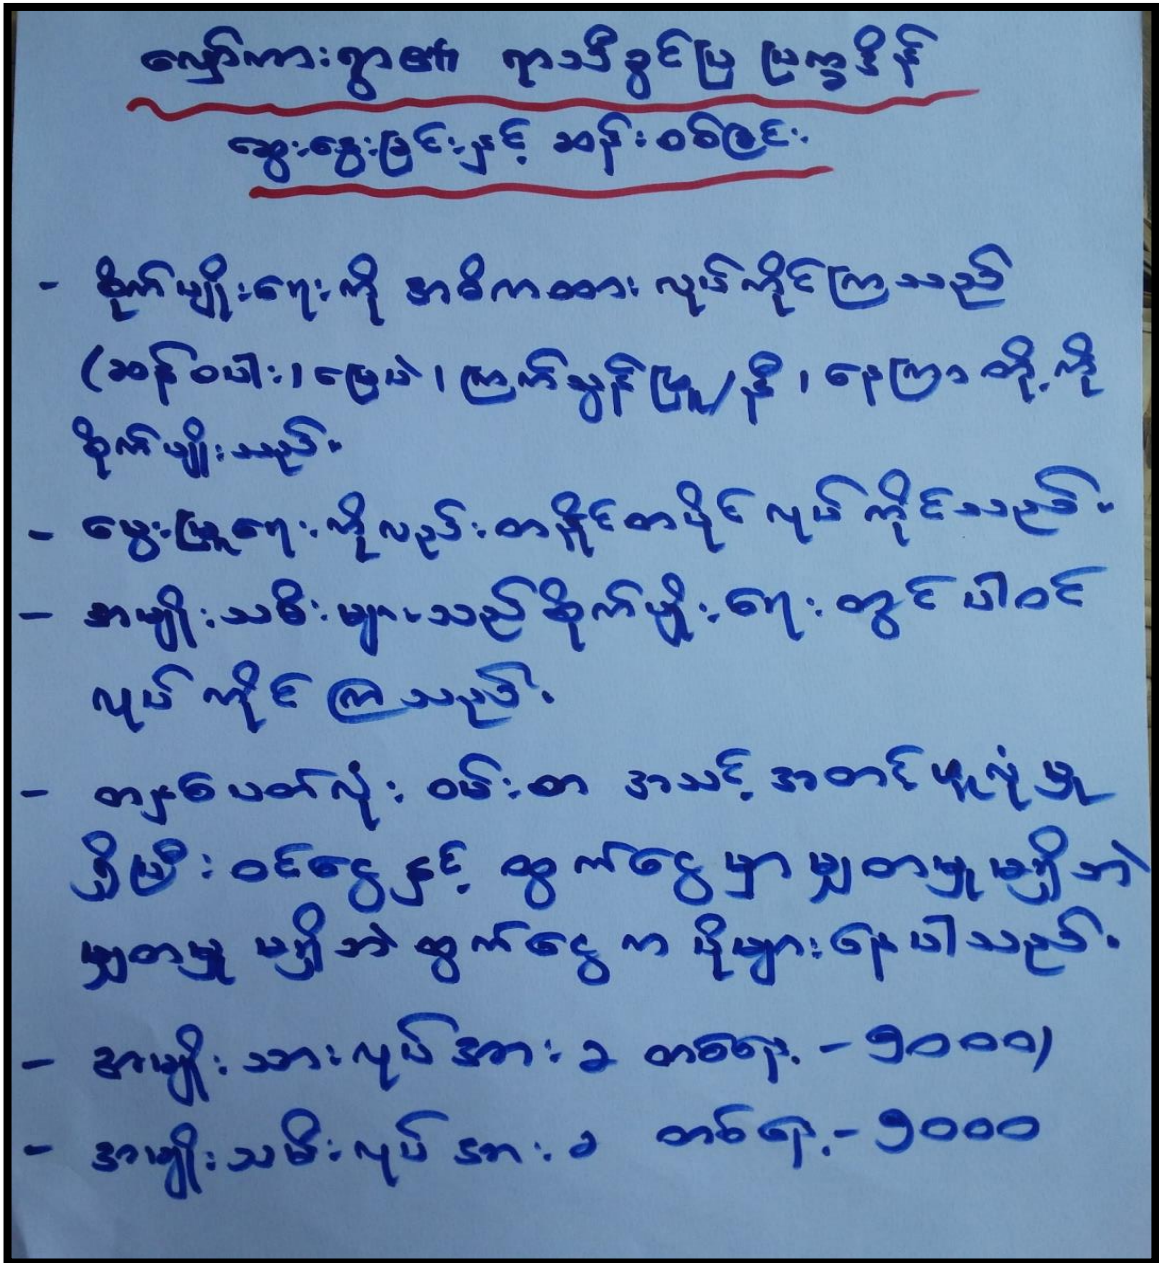 လျှော်ကားရွာ၏ ရာသီခွင်ပြ ပြက္ခဒိန်
ဆွေးနွေးခြင်းနှင့် ဆန်းစစ်ခြင်း
- စိုက်ပျိုးရေးကို အဓိကထား လုပ်ကိုင်ကြသည်
(ဆန်စပါး၊ မြေပဲ၊ ကြက်သွန်ဖြူ/နီ၊ နေကြာ တို့ကို
စိုက်ပျိုးသည်။
- မွေးမြူရေးကိုလည်း တနိုင်တပိုင် လုပ်ကိုင်သည်။
- အမျိုးသမီးများသည် စိုက်ပျိုးရေးတွင် ပါဝင်
လုပ်ကိုင်ကြသည်။
- တနှစ်ပတ်လုံး ဝမ်းစာ အသင့်အတင့် ဖူလုံမှု
ရှိပြီး ဝင်ငွေနှင့် ထွက်ငွေမှာ မျှတမှုမရှိဘဲ
မျှတမှု မရှိဘဲ ထွက်ငွေက ပိုများနေပါသည်။
- အမျိုးသားလုပ်အားခ တစ်နေ့ - ၅၀၀၀၊
- အမျိုးသမီးလုပ်အားခ တစ်နေ့ - ၅၀၀၀